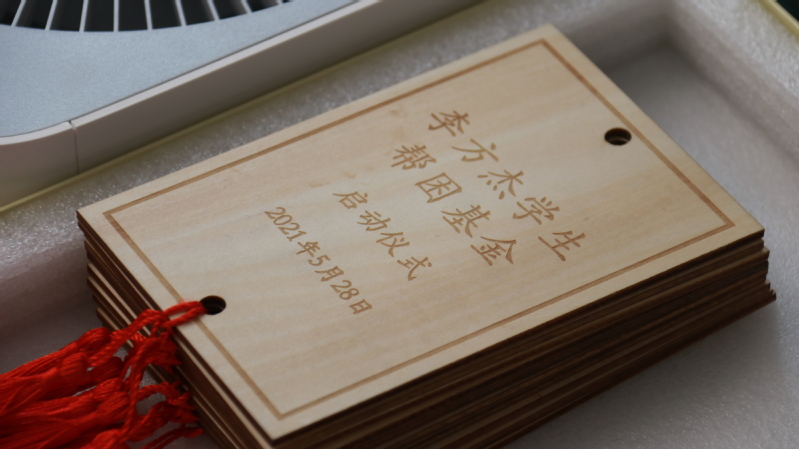 李方杰学生
帮困基金
启动仪式
2021年5月28日